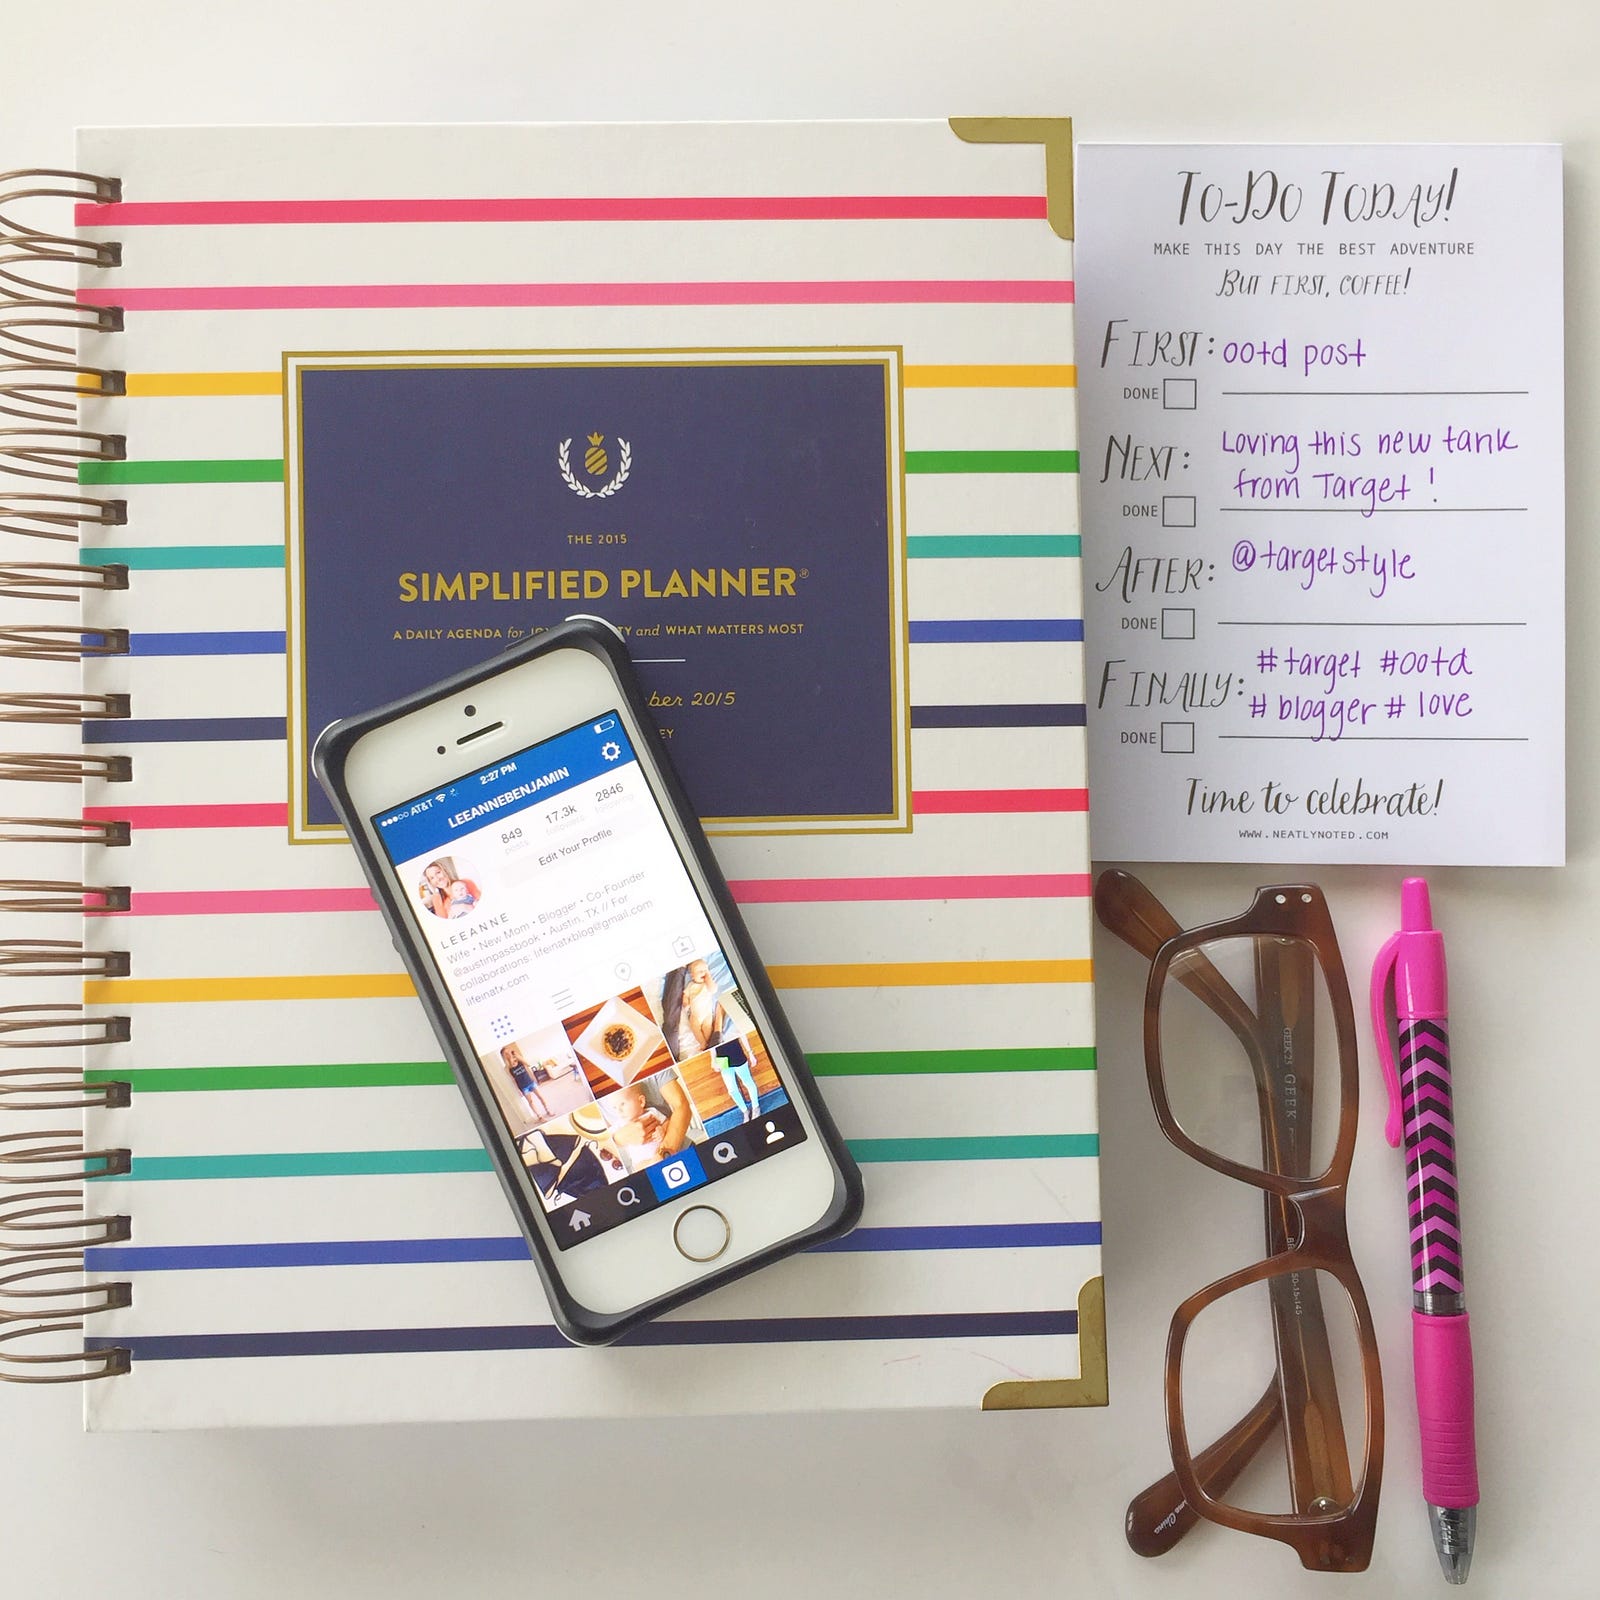 THE 2015
SIMPLIFIED PLANNER®
A DAILY AGENDA for and WHAT MATTERS MOST
2015
AT&T 2:27 PM
LEEANNEBENJAMIN
849 17.3k 2846
posts followers following
Edit Your Profile
LEEANNE
Wife • New Mom • Blogger • Co-Founder
@austinpassbook • Austin, TX // For
collaborations: lifeinatxblog@gmail.com
lifeinatx.com
TO-DO TODAY!
MAKE THIS DAY THE BEST ADVENTURE
BUT FIRST, COFFEE!
FIRST: ootd post
DONE
NEXT: Loving this new tank
from Target !
DONE
AFTER: @targetstyle
DONE
FINALLY: #target #ootd
#blogger #love
DONE
Time to celebrate!
WWW.NEATLYNOTED.COM
GEEK25 GEEK
50-15-145